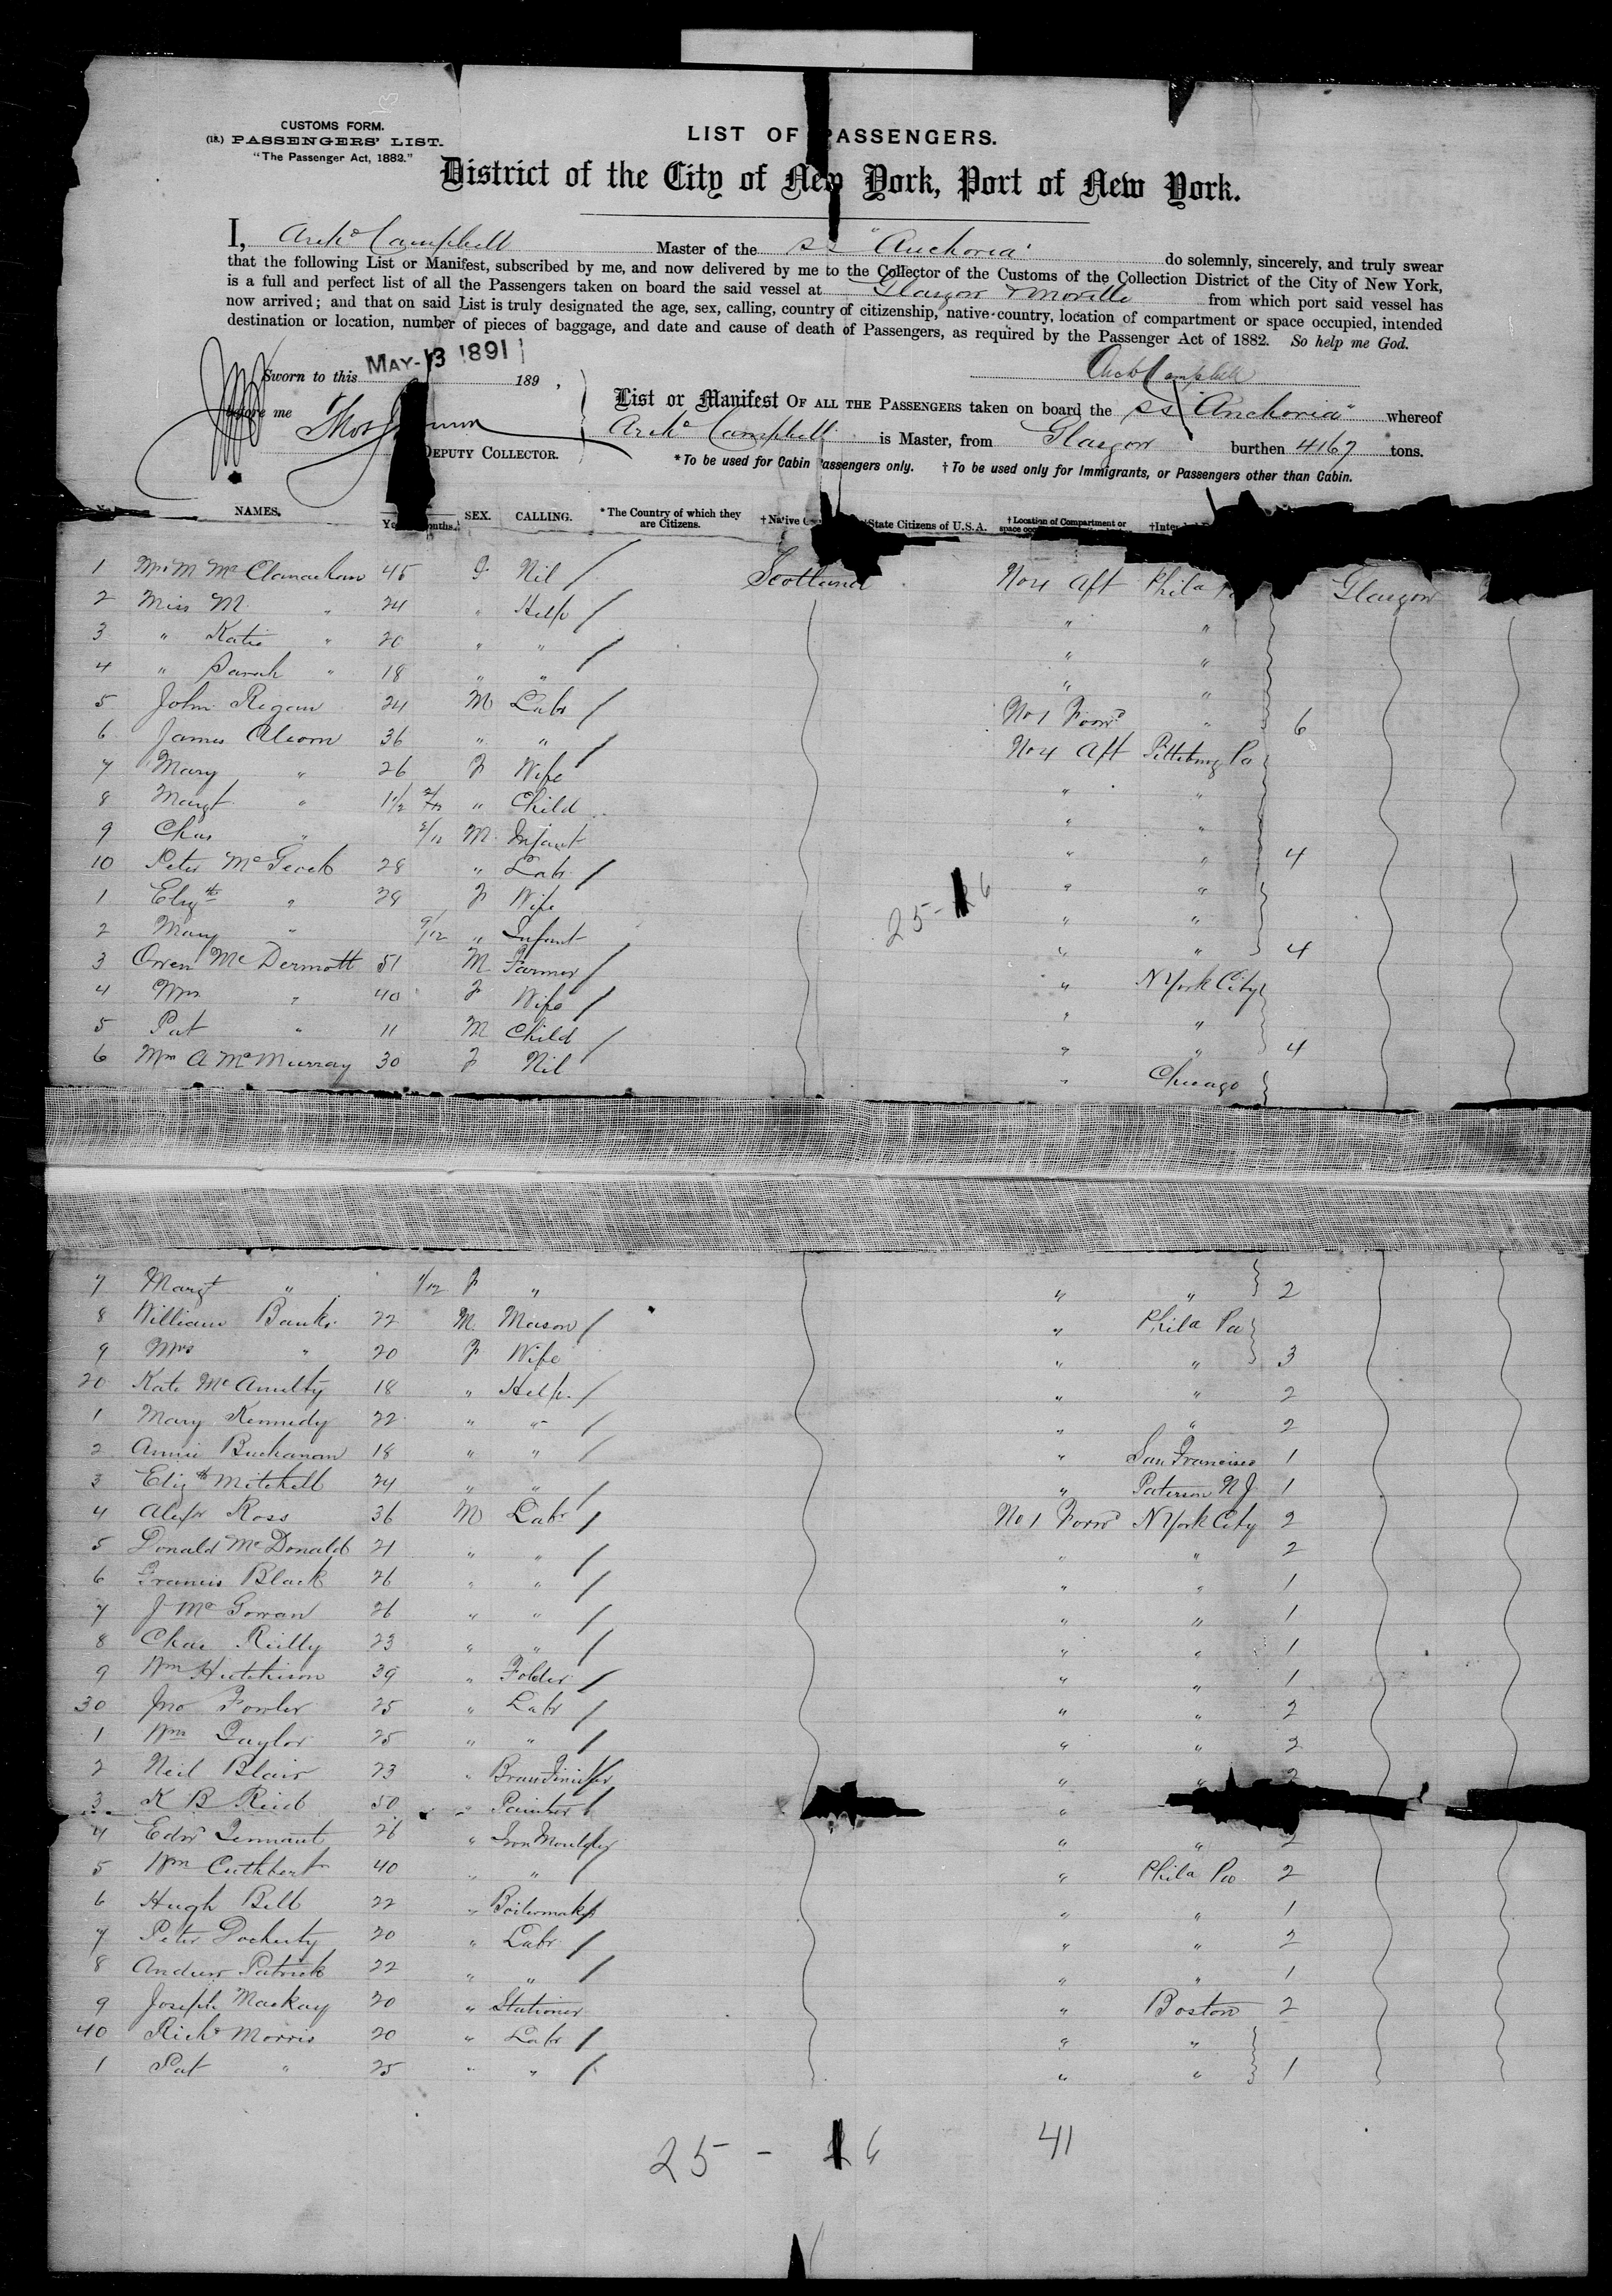 CUSTOMS FORM.
(18.) PASSENGERS' LIST.
"The Passenger Act, 1882."
LIST OF PASSENGERS.
District of the City of New York, Port of New York.
I, Archd Campbell Master of the SS "Anchoria" do solemnly, sincerely, and truly swear
that the following List or Manifest, subscribed by me, and now delivered by me to the Collector of the Customs of the Collection District of the City of New York,
is a full and perfect list of all the Passengers taken on board the said vessel at Glasgow & Moville from which port said vessel has
now arrived; and that on said List is truly designated the age, sex, calling, country of citizenship, native country, location of compartment or space occupied, intended
destination or location, number of pieces of baggage, and date and cause of death of Passengers, as required by the Passenger Act of 1882. So help me God.
Archd Campbell
Sworn to this MAY 13 1891 189 ,
before me Thos
DEPUTY COLLECTOR.
List or Manifest OF ALL THE PASSENGERS taken on board the SS "Anchoria" whereof
Archd Campbell is Master, from Glasgow burthen 4167 tons.
*To be used for Cabin Passengers only. †To be used only for Immigrants, or Passengers other than Cabin.
NAMES. SEX. CALLING. *The Country of which they are Citizens. †Native State Citizens of U.S.A. †Location of Compartment or
1 Mrs M McClanachan 45 F Nil Scotland No 4 Aft Phila Glasgow
2 Miss M " 24 " Help " "
3 " Katie " 20 " " " "
4 " Sarah " 18 " " " "
5 John Regan 24 M Labr No 1 Forwd " 6
6 James Alcorn 36 " " No 4 Aft Pittsburg Pa
7 Mary " 26 F Wife " "
8 Margt " 1 1/2 " Child " "
9 Chas " 2/12 M Infant " " 4
10 Peter 28 " Labr " "
1 Elizth " 28 F Wife " "
25 - 6
2 Mary " 9/12 " Infant " " 4
3 Owen McDermott 51 M Farmer " N York City
4 Mrs " 40 F Wife " "
5 Pat " 11 M Child " " 4
6 Mrs A McMurray 30 F Nil " Chicago
7 Margt " 1/12 F " " " 2
8 William Banks 22 M Mason " Phila Pa
9 Mrs " 20 F Wife " " 3
20 Kate McAnulty 18 " Help " " 2
1 Mary Kennedy 22 " " " " 2
2 Annie Buchanan 18 " " " San Francisco 1
3 Elizth Mitchell 24 " " " Paterson N J 1
4 Alexr Ross 36 M Labr No 1 Forwd N York City 2
5 Donald McDonald 21 " " " " 2
6 Francis Black 26 " " " " 1
7 J McGowan 26 " " " " 1
8 Chas Reilly 23 " " " " 1
9 Wm Hutchison 39 " Folder " " 1
30 Jno Fowler 25 " Labr " " 2
1 Wm Taylor 25 " " " " 2
2 Neil Blair 23 " Brassfinisher " " 2
3 K B Reid 50 " Painter "
4 Edwd Tennant 26 " Iron Moulder " " 2
5 Wm Cuthbert 40 " " " Phila Pa 2
6 Hugh Bell 22 " Boilermaker " " 1
7 Peter Docherty 20 " Labr " " 2
8 Andrew Patrick 22 " " " " 1
9 Joseph Mackay 20 " Stationer " Boston 2
40 Richd Morris 20 " Labr " "
1 Pat " 25 " " " " 1
25 - 6 41